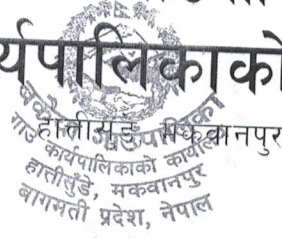 र्यपालिकाको
हात्तीसुँडे, मकवानपुर
गाउँ कार्यपालिकाको कार्यालय
हात्तीसुँडे, मकवानपुर
बागमती प्रदेश, नेपाल